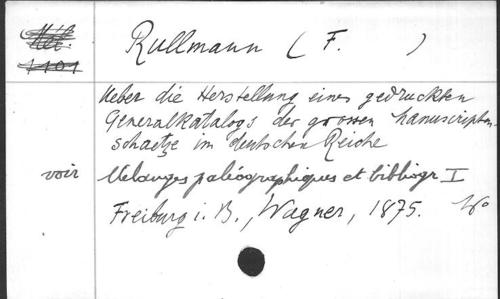 Rullmann ( F. )
Ueber die Herstellung eines gedruckten
Generalkatalogs der grossen Manuscripten-
schaetze im deutschen Reiche
voir Melanges paléographiques et bibliogr I
Freiburg i. B., Wagner, 1875.